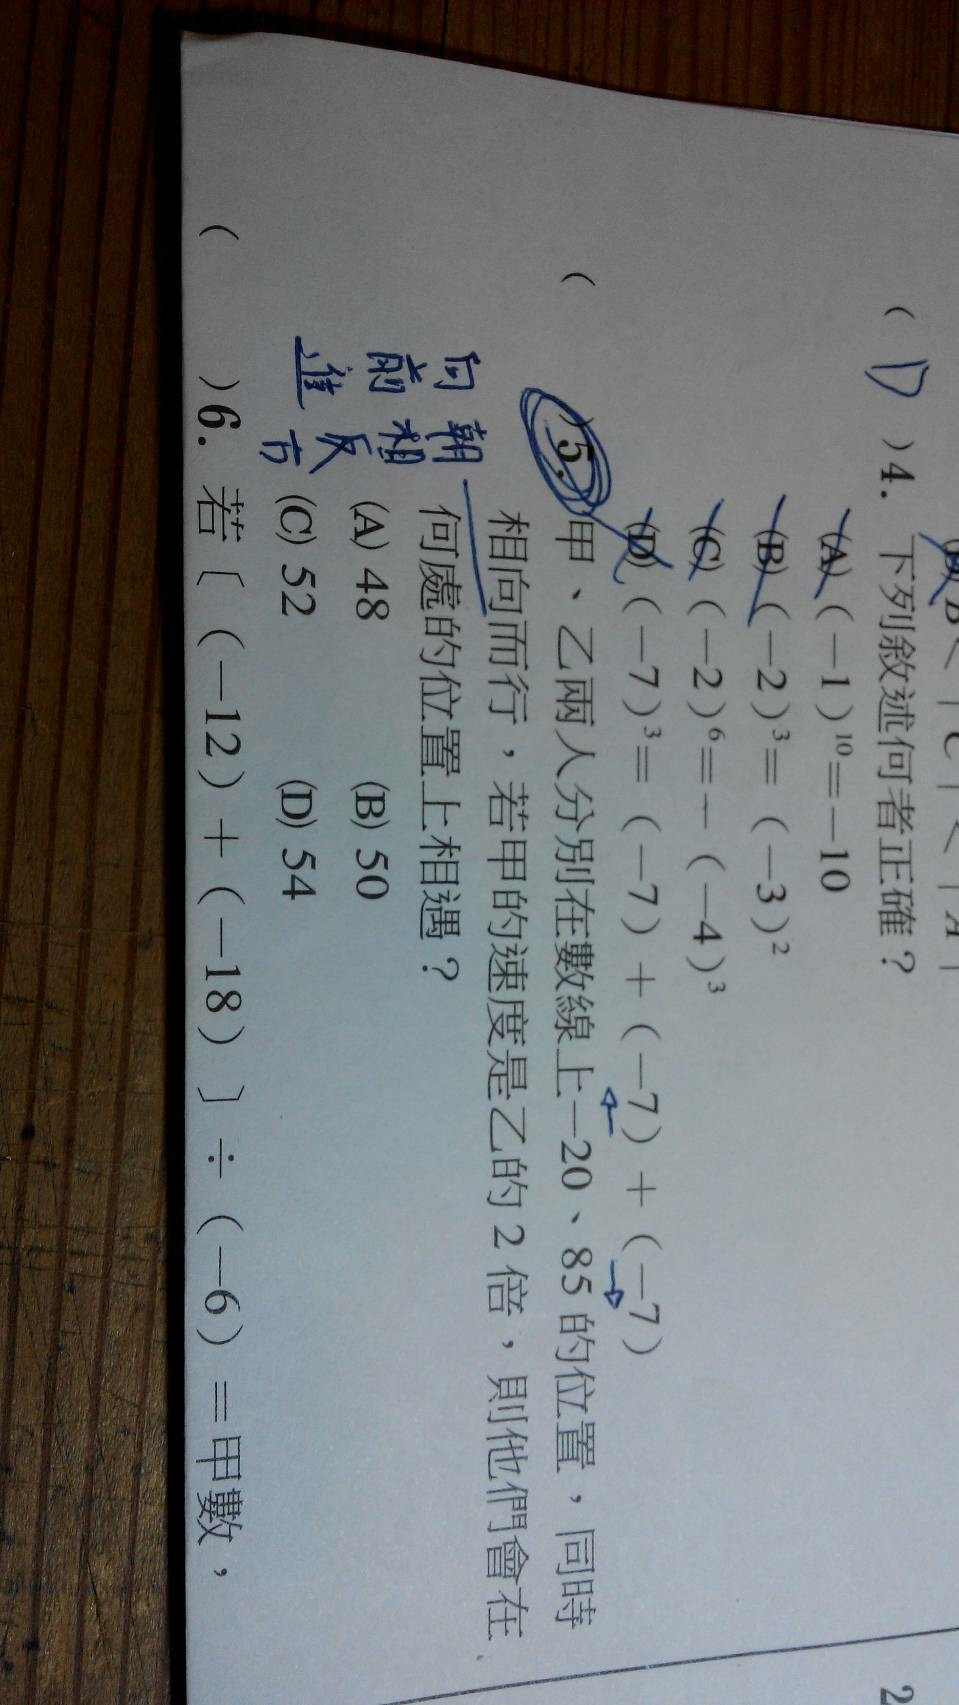 ( D )4. 下列敘述何者正確？
(A) (−1)¹⁰=−10
(B) (−2)³=(−3)²
(C) (−2)⁶=−(−4)³
(D) (−7)³=(−7)+(−7)+(−7)
( )5. 甲、乙兩人分別在數線上−20、85的位置，同時
相向而行，若甲的速度是乙的2倍，則他們會在
何處的位置上相遇？
(A) 48 (B) 50
(C) 52 (D) 54
朝相反方
向前進
( )6. 若〔(−12)+(−18)〕÷(−6)=甲數，
2